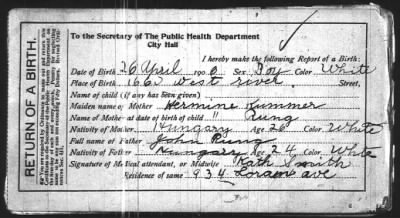 RETURN OF A BIRTH.
To the Secretary of The Public Health Department
City Hall
I hereby make the following Report of a Birth:
Date of Birth 26 April 1906 Sex Boy Color White
Place of Birth 1662 West river Street,
Name of child (if any has been given)
Maiden name of Mother Hermine Kummer
Name of Mother at date of birth of child " Rung
Nativity of Mother Hungary Age 26 Color White
Full name of Father John Rung
Nativity of Father Hungary Age 24 Color White
Signature of Medical attendant, or Midwife Kath Smith
Residence of same 934 Lorain ave